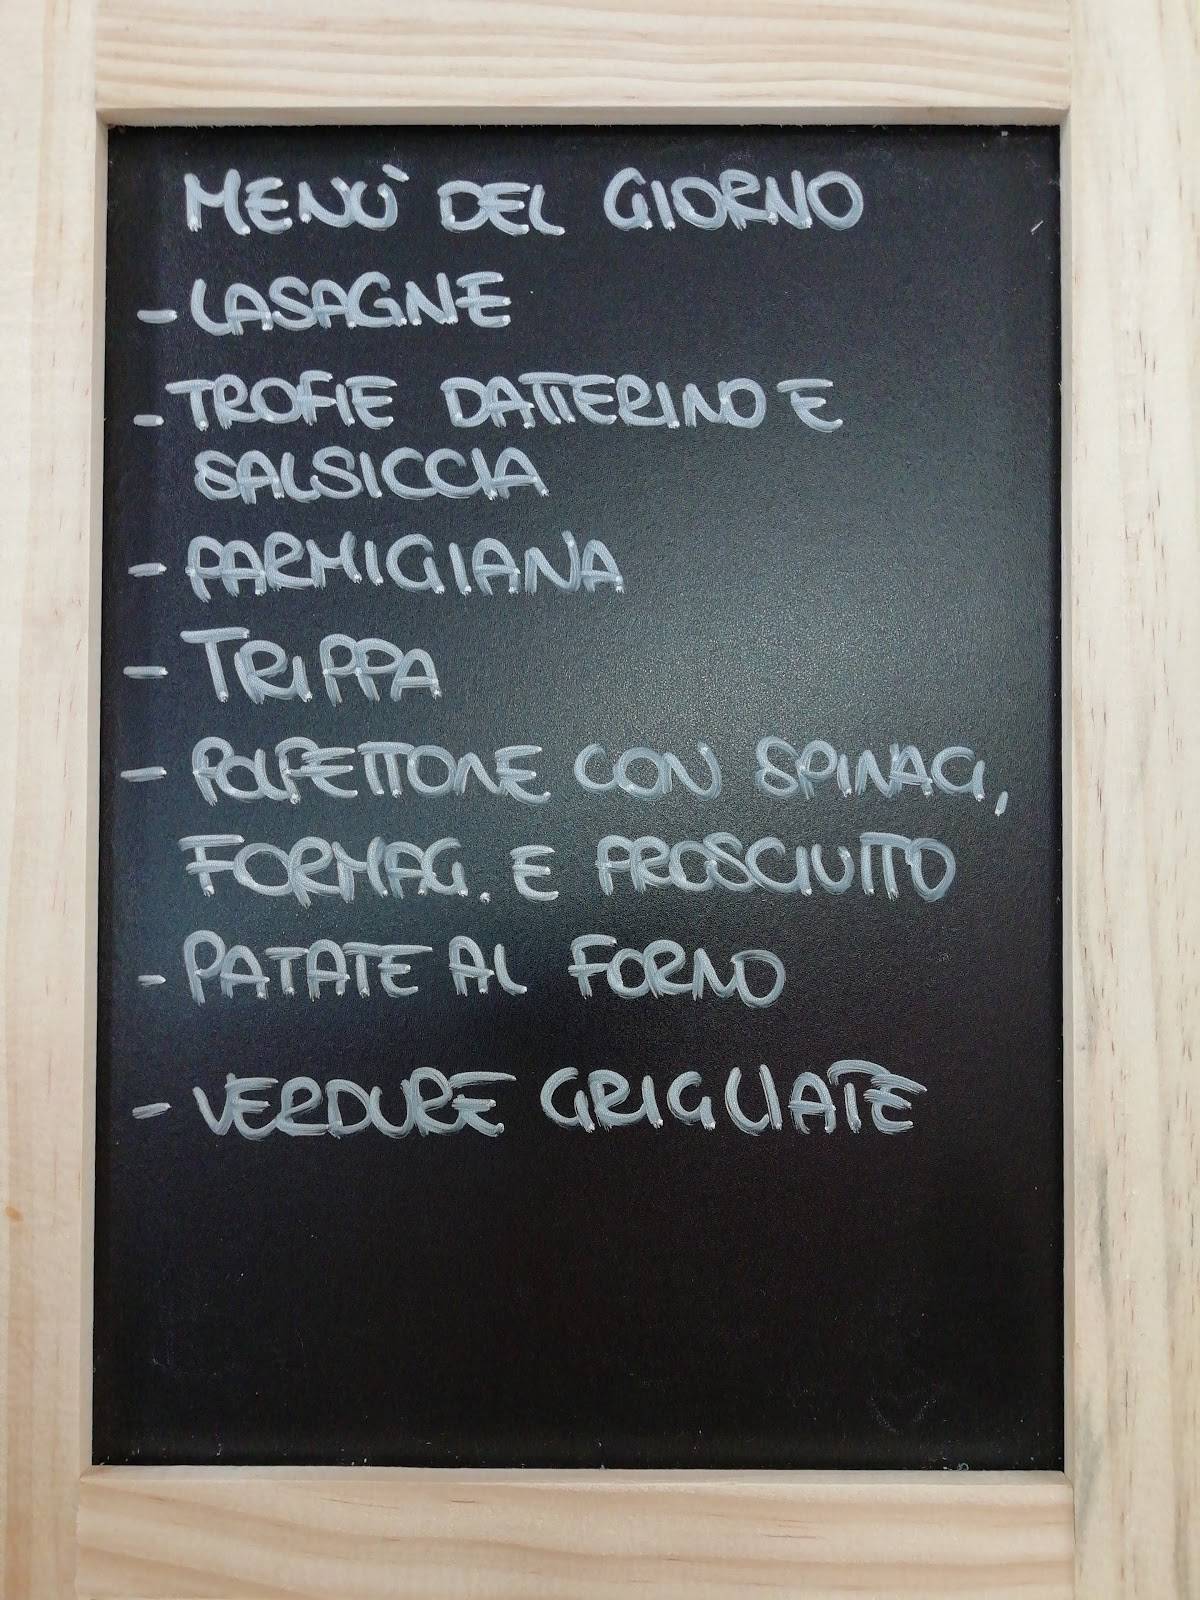 MENÙ DEL GIORNO
- LASAGNE
- TROFIE DATTERINO E
SALSICCIA
- PARMIGIANA
- TRIPPA
- POLPETTONE CON SPINACI,
FORMAG. E PROSCIUTTO
- PATATE AL FORNO
- VERDURE GRIGLIATE